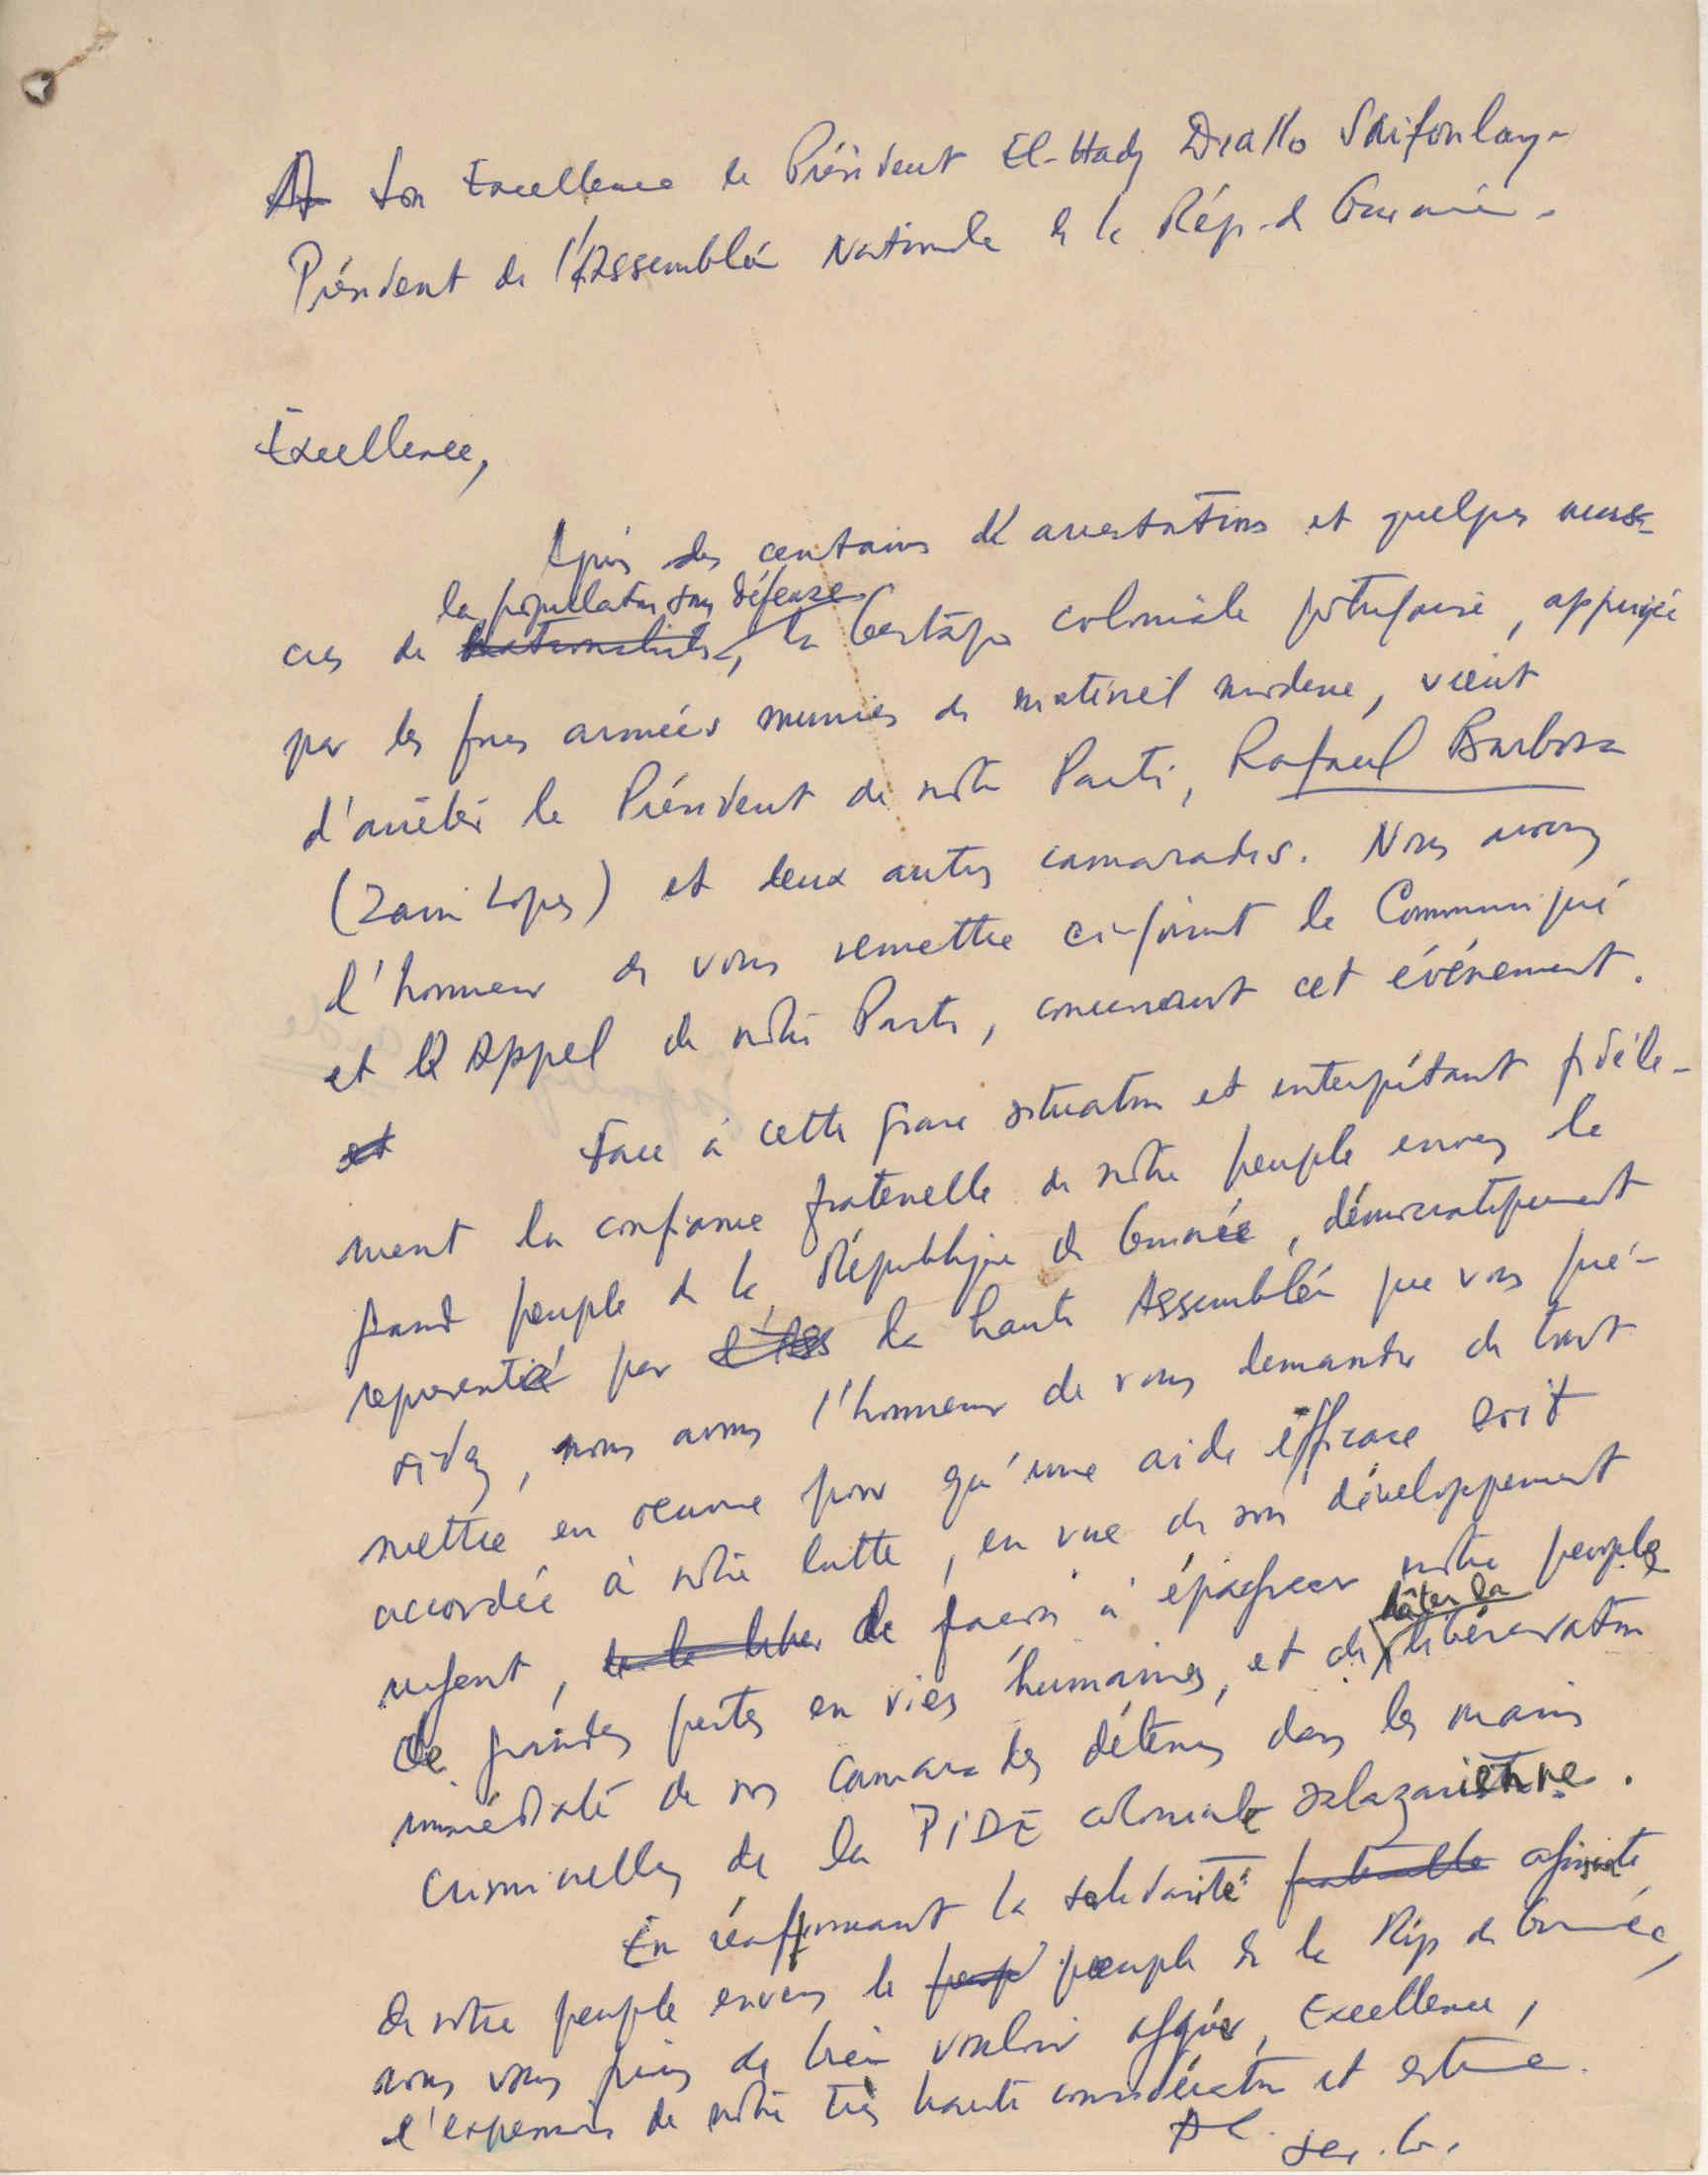 A Son Excellence le Président El-Hadj Diallo Saifoulaye
Président de l'Assemblée Nationale de la Rép. de Guinée.
Excellence,
Après des centaines d'arrestations et quelques massa-
la population sans défense
cres de nationalistes, la Gestapo coloniale portugaise, appuyée
par les forces armées munies de matériel moderne, vient
d'arrêter le Président de notre Parti, Rafael Barbosa
(Zain Lopes) et deux autres camarades. Nous avons
l'honneur de vous remettre ci-joint le Communiqué
et l'Appel de notre Parti, concernant cet événement.
et Face à cette grave situation et interprétant fidèle-
ment la confiance fraternelle de notre peuple envers le
grand peuple de la République de Guinée, démocratiquement
representé par l'Ass la haute Assemblée que vous pré-
sidez, nous avons l'honneur de vous demander de tout
mettre en oeuvre pour qu'une aide efficace soit
accordée à notre lutte, en vue de son développement
urgent, de la liber de façon à épargner notre peuple
hâter la
de grandes pertes en vies humaines, et de libération
immédiate de nos camarades détenus dans les mains
criminelles de la PIDE coloniale salazarienne.
En réaffirmant la solidarité fraternelle agissante
de notre peuple envers le peup peuple de la Rép de Guinée,
nous vous prions de bien vouloir agréer, Excellence,
l'expression de notre très haute considération et estime.
AC. Sec. G.